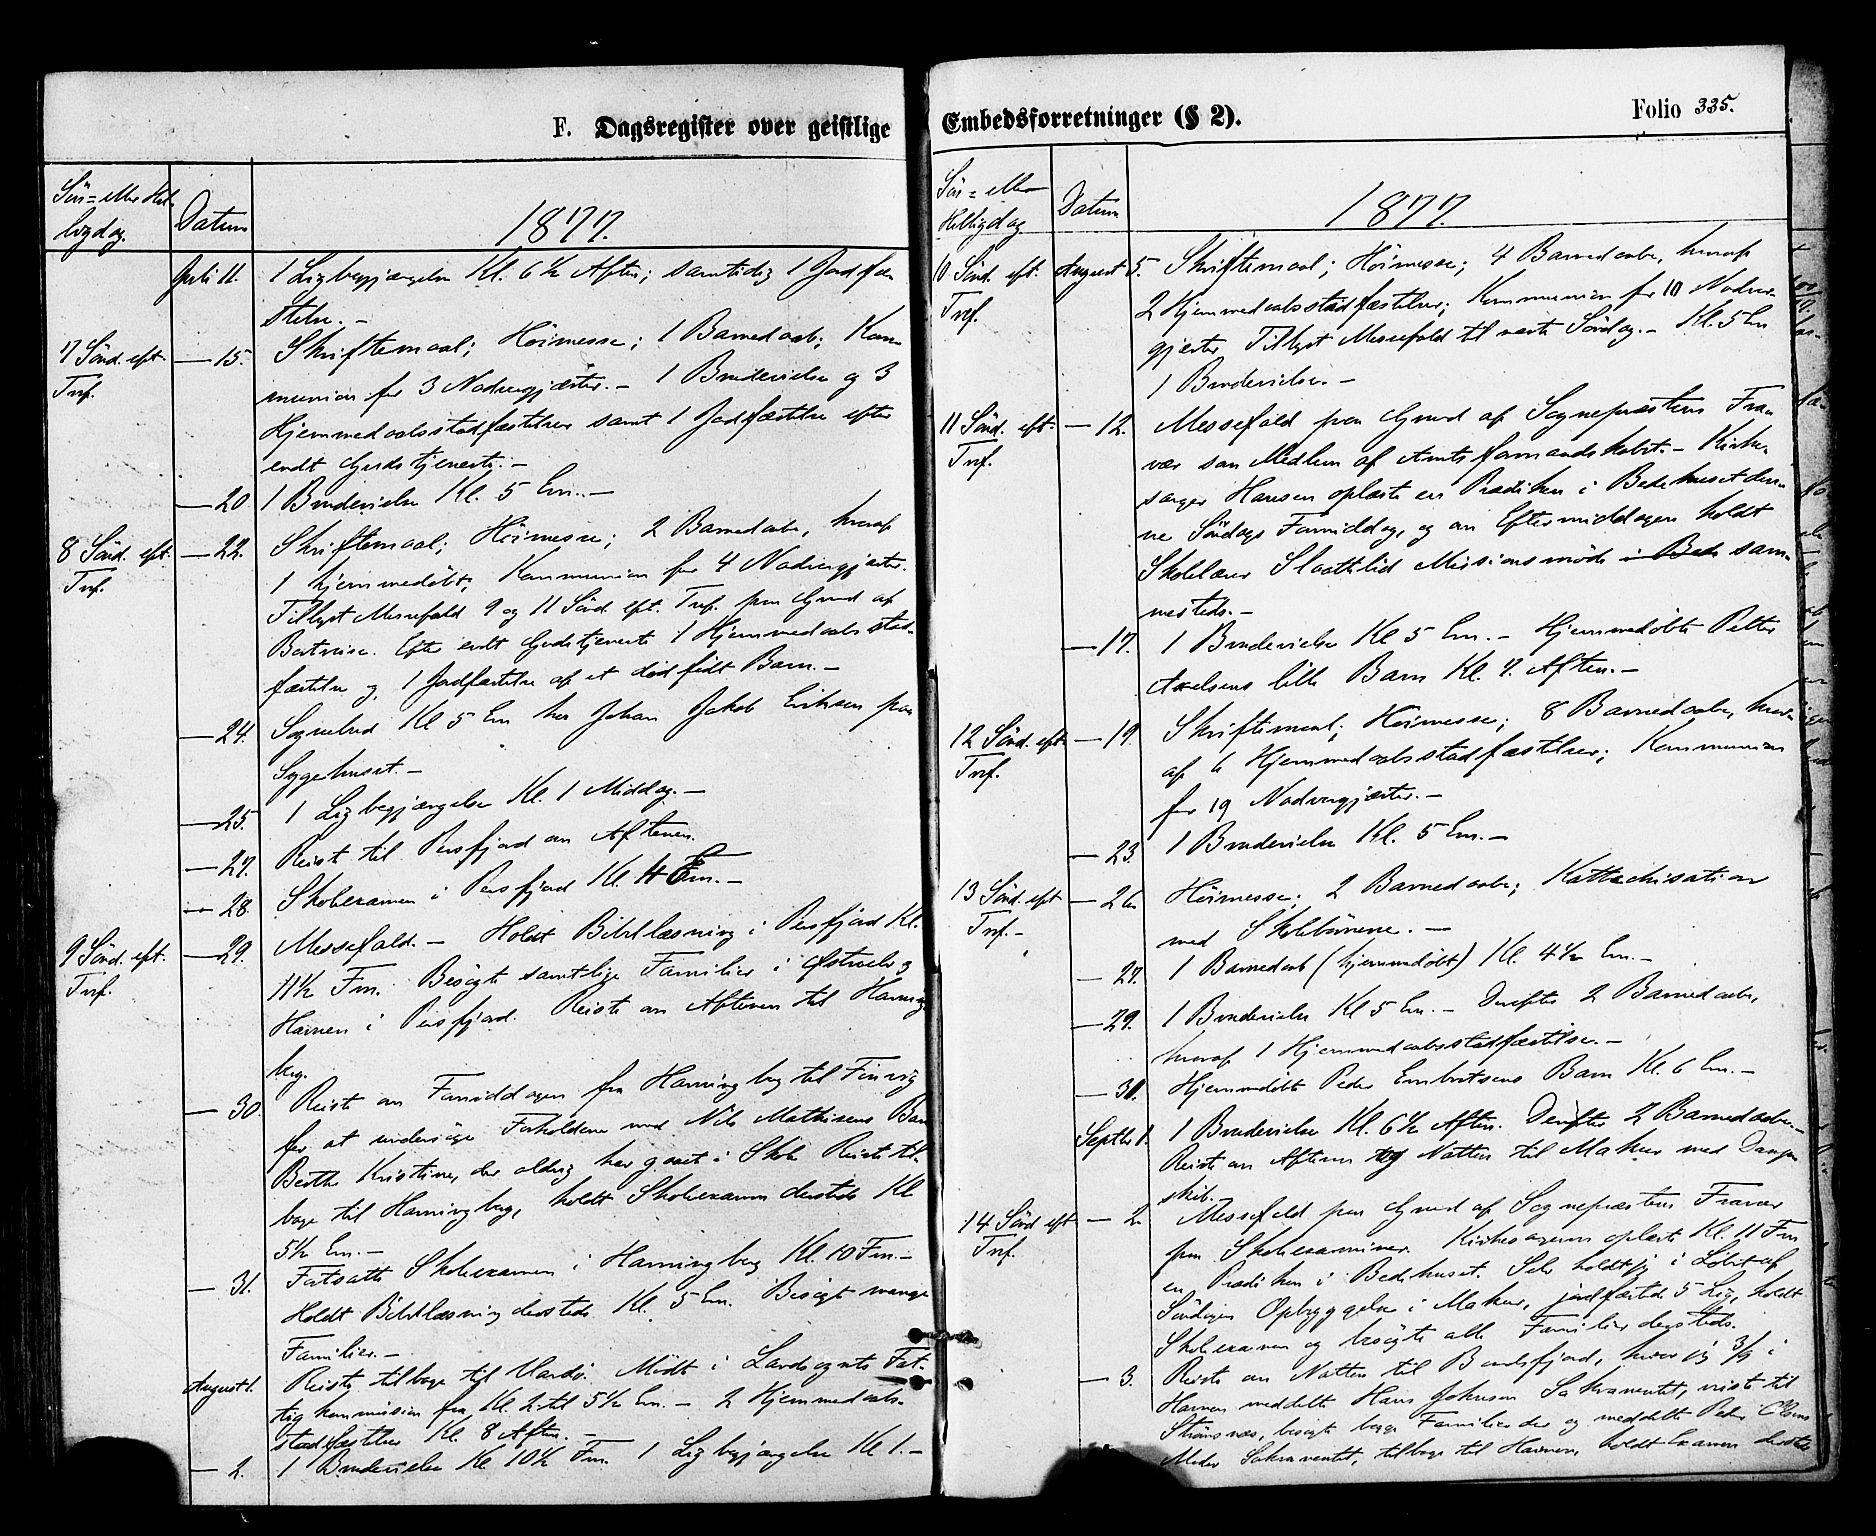 F. Dagsregister over geistlige
Søn= eller Hel-
ligdag.
Datum
1877.
Juli 11. 1 Ligbegjængelse Kl. 6½ Aften; samtidig 1 Jordfæ-
stelse.-
7 Sønd. eft. Tref. — 15. Skriftemaal; Høimesse; 1 Barnedaab; Kom-
munion for 3 Nadvergjæster.- 1 Brudevielse og 3
Hjemmedaabsstadfæstelser samt 1 Jordfæstelse efter
endt Gudstjeneste.-
— 20 1 Brudevielse Kl. 5 Em.-
8 Sønd. eft. Tref. — 22. Skriftemaal; Høimesse; 2 Barnedaabe, hvoraf
1 hjemmedøbt; Kommunion for 4 Nadvergjæster.
Tillyst Messefald 9 og 11 Sønd. eft. Tref. paa Grund af
Bortreise. Efter endt Gudstjeneste 1 Hjemmedaabsstad-
fæstelse og 1 Jordfæstelse af et dødfødt Barn.-
— 24. Sognebud Kl 5 Em hos Johan Jakob Eriksen paa
Sygehuset.-
— 25. 1 Ligbegjængelse Kl. 1 Middag.-
— 27. Reist til Persfjord om Aftenen.
— 28. Skoleexamen i Persfjord Kl. 4 Em.-
9 Sønd. eft. Tref. — 29. Messefald.- Holdt Bibellæsning i Persfjord Kl.
11½ Fm. Besøgt samtlige Familier i og
Havnen i Persfjord. Reiste om Aftenen til Havning-
berg.
— 30 Reiste om Formiddagen fra Havningberg til Finvig
for at undersøge Forholdene med Nils Mathisens Barn
Berthe Kristine, der aldrig har gaaet i Skole Reiste til-
bage til Havningberg, holdt Skoleexamen dersteds Kl
5½ Em.-
— 31. Fortsatte Skoleexamen i Havningberg Kl. 10 Fm.-
Holdt Bibellæsning dersteds Kl. 5 Em. Besøgt mange
Familier.-
August 1. Reiste tilbage til Vardø. Mødt i Landsognets Fat-
tigkommission fra Kl. 2 til 5½ Em.- 2 Hjemmedaabs-
stadfæstelser Kl. 8 Aften.-
— 2. 1 Brudevielse Kl 10½ Fm. 1 Ligbegjængelse Kl 1.-
Embedsforretninger (§ 2).
Folio 335.
Søn= eller
Helligdag
Datum
1877.
10 Sønd. eft. Tref. August 5. Skriftemaal; Høimesse; 4 Barnedaabe, hvoraf
2 Hjemmedaabsstadfæstelser; Kommunion for 10 Nadver-
gjæster. Tillyst Messefald til næste Søndag.- Kl. 5 Em
1 Brudevielse.-
11 Sønd. eft. Tref. — 12. Messefald paa Grund af Sognepræstens Fra-
vær som Medlem af Amtsformandskabet.- Kirke-
sanger Hansen oplæste en Prædiken i Bedehuset den-
ne Søndags Formiddag, og om Eftermiddagen holdt
Skolelærer Slaattelid Missionsmøde i Bede sam-
mesteds.-
— 17. 1 Brudevielse Kl 5 Em.- Hjemmedøbte Petter
Axelsens lille Barn Kl. 7. Aften.-
12 Sønd. eft. Tref. — 19. Skriftemaal; Høimesse; 8 Barnedaabe, hvor-
af 6 Hjemmedaabsstadfæstelser; Kommunion
for 19 Nadvergjæster.-
— 23. 1 Brudevielse Kl. 5 Em.-
13 Sønd. eft Tref.- — 26 Høimesse; 2 Barnedaabe; Kattechisation
med Skolebørnene.-
— 27. 1 Barnedaab (hjemmedøbt) Kl. 4½ Em.-
— 29. 1 Brudevielse Kl 5 Em.- Derefter 2 Barnedaabe,
hvoraf 1 Hjemmedaabsstadfæstelse.-
— 30. Hjemmedøbt Peder Embretsens Barn Kl. 6 Em.-
Septbr 1. 1 Brudevielse Kl. 6½ Aften. Derefter 2 Barnedaabe.-
Reiste om Aftenen og Natten til Makur med Damp-
skib.
14 Sønd eft Tref. — 2. Messefald paa Grund af Sognepræstens Fravær
paa Skoleexaminer. Kirkesangeren oplæst Kl. 11 Fm
en Prædiken i Bedehuset. Selv holdt jeg i Løbet af
Søndagen Opbyggelse i Makur, jordfæstede 5 Lig, holdt
Skoleexamen og besøgte alle Familier dersteds.
— 3. Reiste om Natten til Baadsfjord, hvor jeg 3/9 i
Havnen meddelte Hans Johnsen Sakramentet, reiste til
Strømsnæs, besøgte begge Familier der og meddelte Peder Olsens
Moder Sakramentet, tilbage til Havnen, holdt Examen dersteds